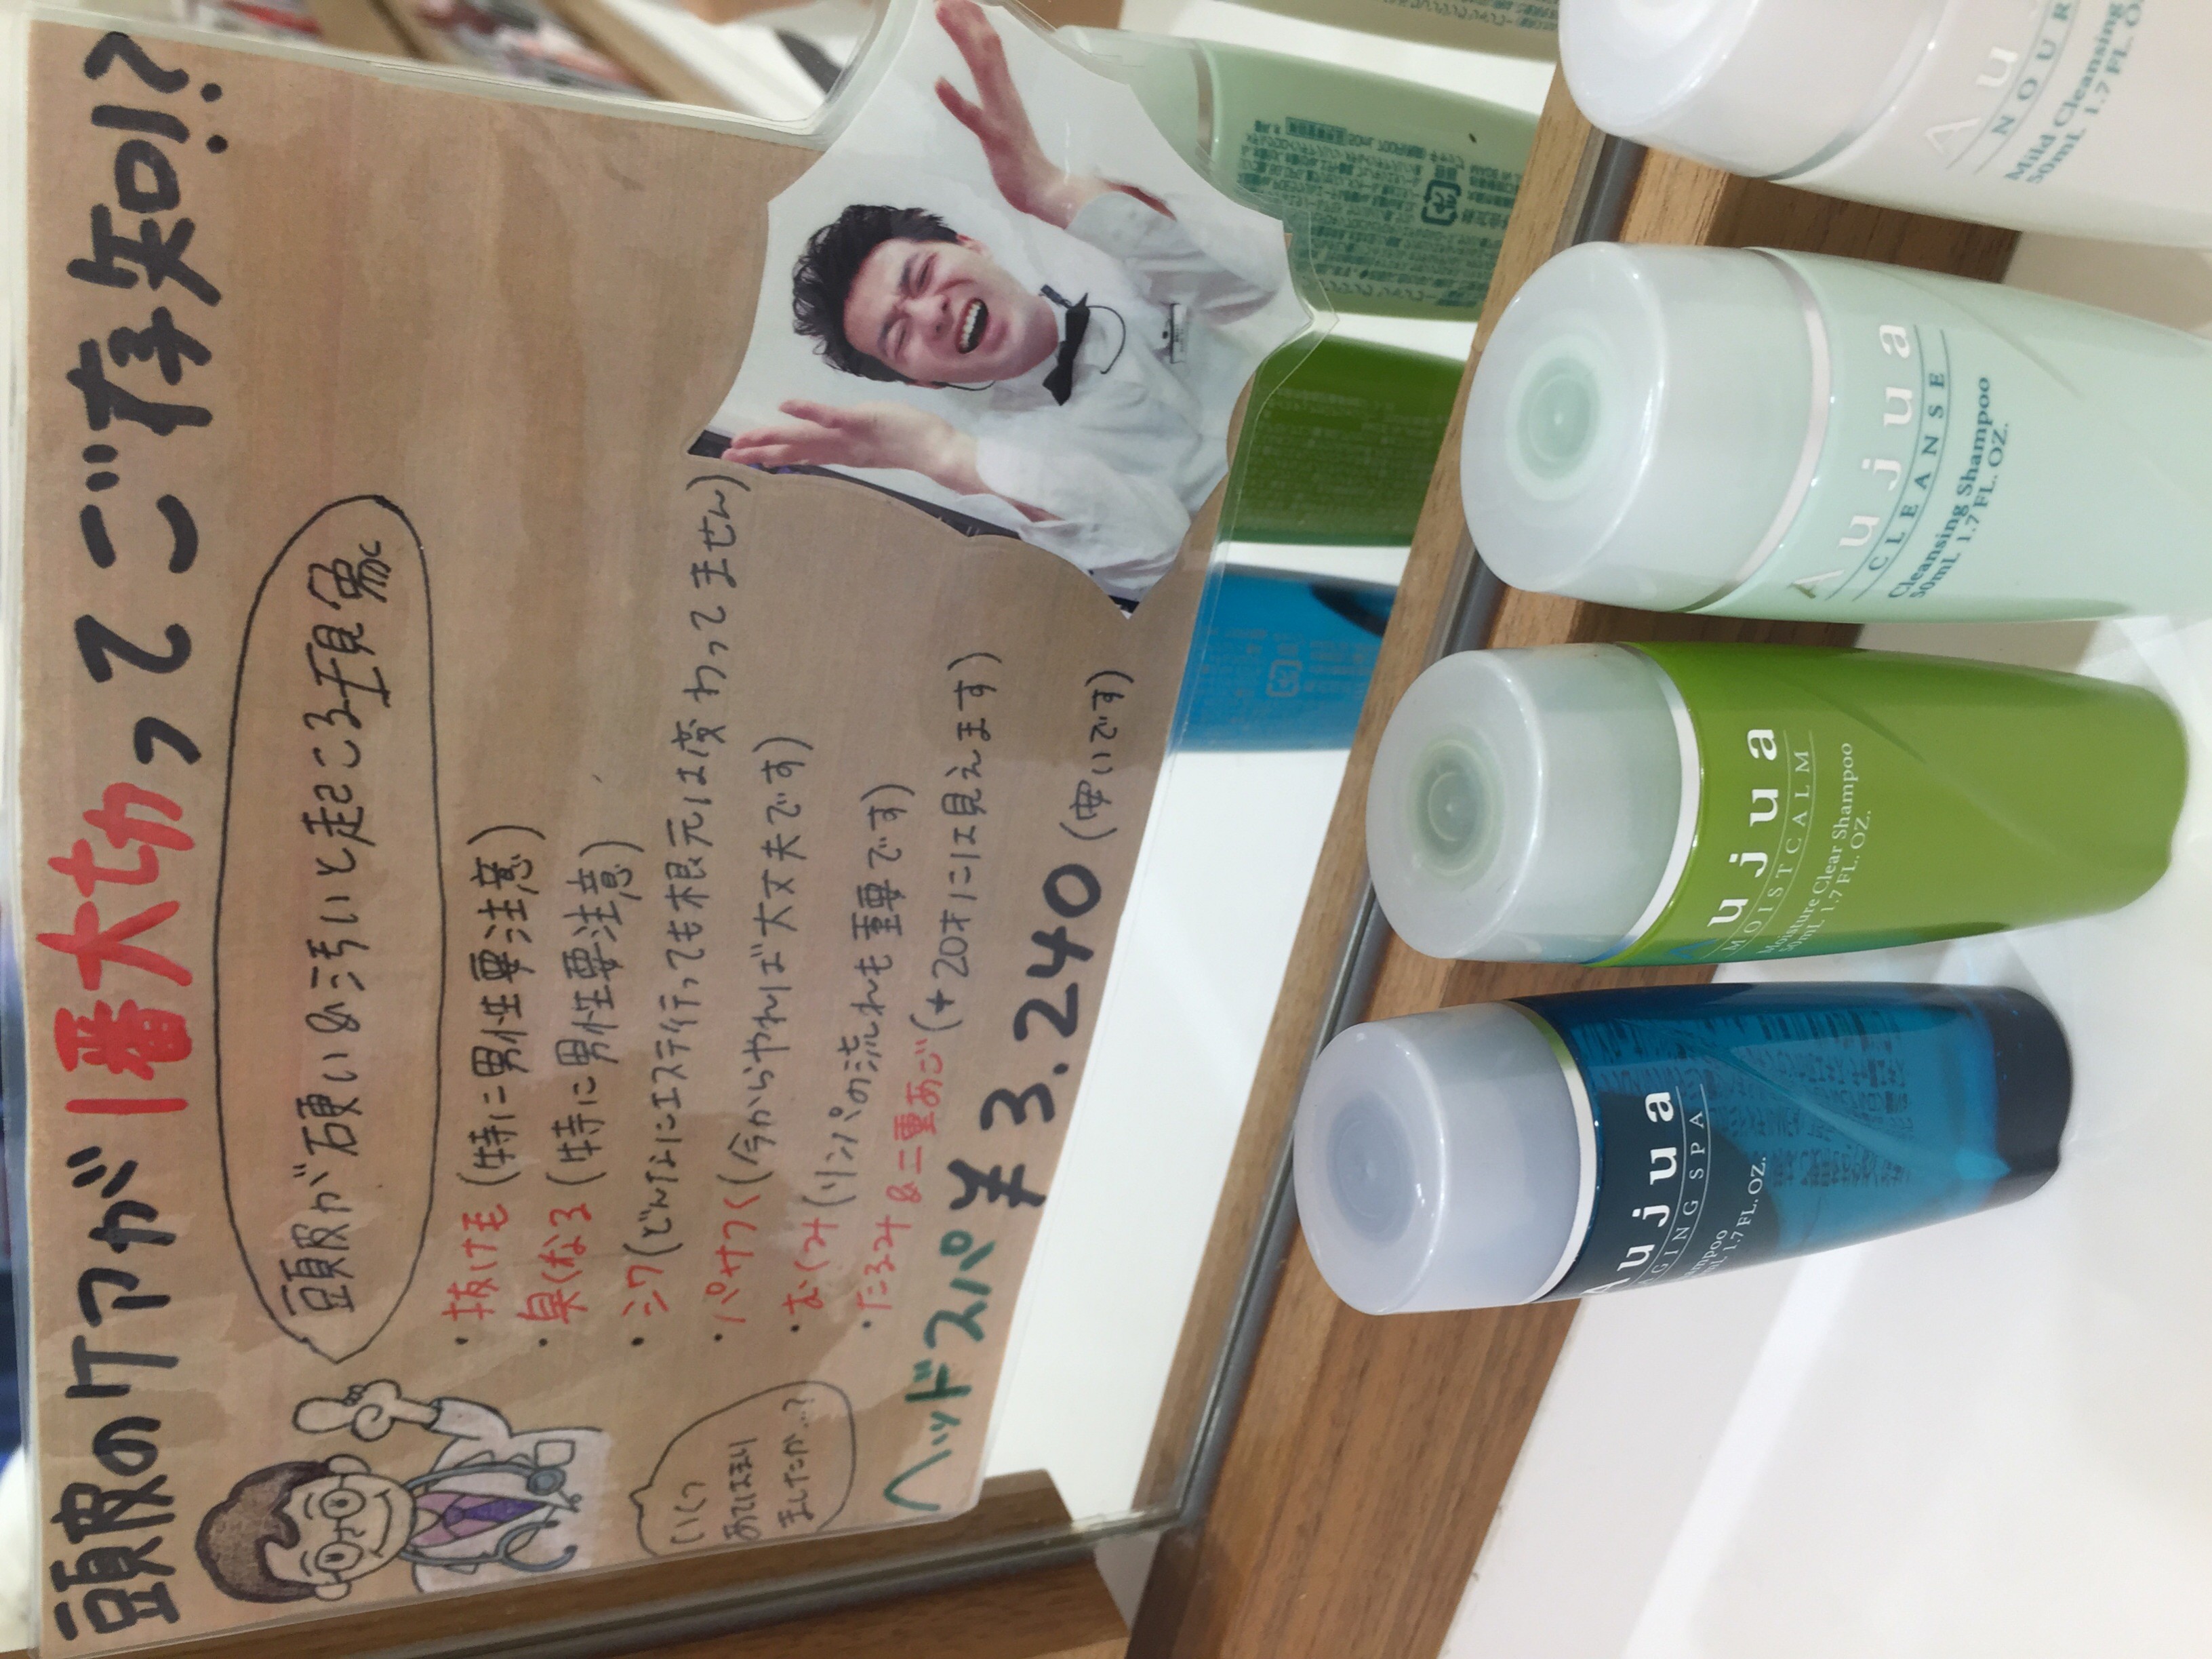 頭皮のケアが1番大切ってご存知!?
頭皮が硬い&汚いと起こる現象
・抜け毛(特に男性要注意)
・臭くなる(特に男性要注意)
・シワ(どんなにエステ行っても根元は変わってません)
・パサつく(今からやれば大丈夫です)
・むくみ(リンパの流れも重要です)
・たるみ&二重あご(+20才には見えます)
いくつ
あてはまり
ましたか…?
ヘッドスパ ¥3.240(安いです)
Aujua
AGING SPA
1.7 FL. OZ.
Aujua
MOISTCALM
Moisture Clear Shampoo
50mL 1.7 FL. OZ.
Aujua
CLEANSE
Cleansing Shampoo
50mL 1.7 FL. OZ.
Au
NOUR
Mild Cleansing
50mL 1.7 FL. O